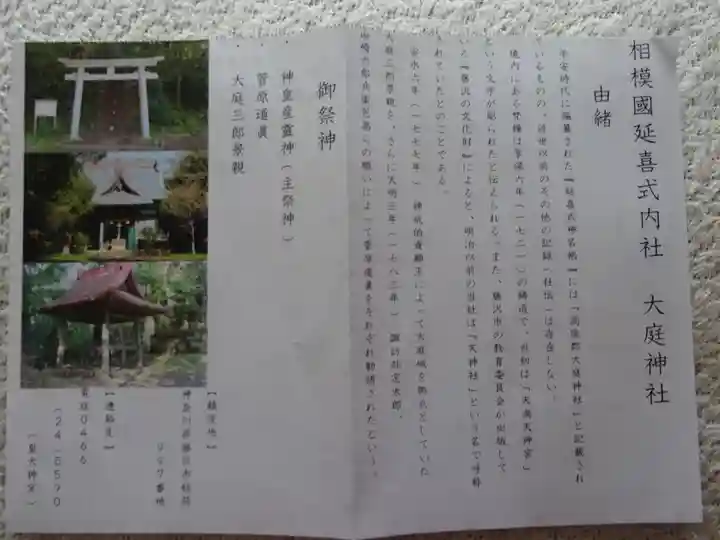 相模國延喜式内社　大庭神社
由緒
平安時代に編纂された『延喜式神名帳』には「高座郡大庭神社」と記載され
ているものの、近世以前のその他の記録（社伝）は存在しない。
境内にある梵鐘は享保六年（一七二一）の鋳造で、
という文字が彫られたと伝えられる。また、藤沢市の教育委員会が出版して
いる『藤沢の文化財』によると、明治以前の当社は「天神社」という名で呼称
されていたとのことである。
安永六年（一七七七年）
によって大庭城を拠点としていた
大庭三郎景親を、さらに天明三年（一七八三年）
の願いによって菅原道真をそれぞれ勧請されたという。
御祭神
・神皇産靈神（主祭神）
・菅原道眞
・大庭三郎景親
【鎮座地】
神奈川県藤沢市稲荷
９９７番地
【連絡先】
電話０４６６
（２４）５５７０
（皇大神宮）